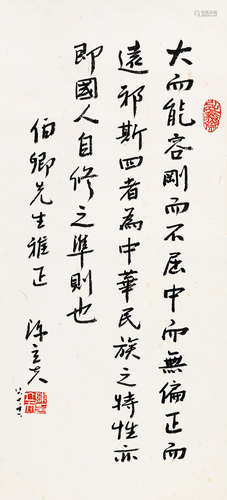 大而能容剛而不屈中而無偏正而
遠邪斯四者為中華民族之特性亦
即國人自修之準則也
伯卿先生雅正
陳立夫